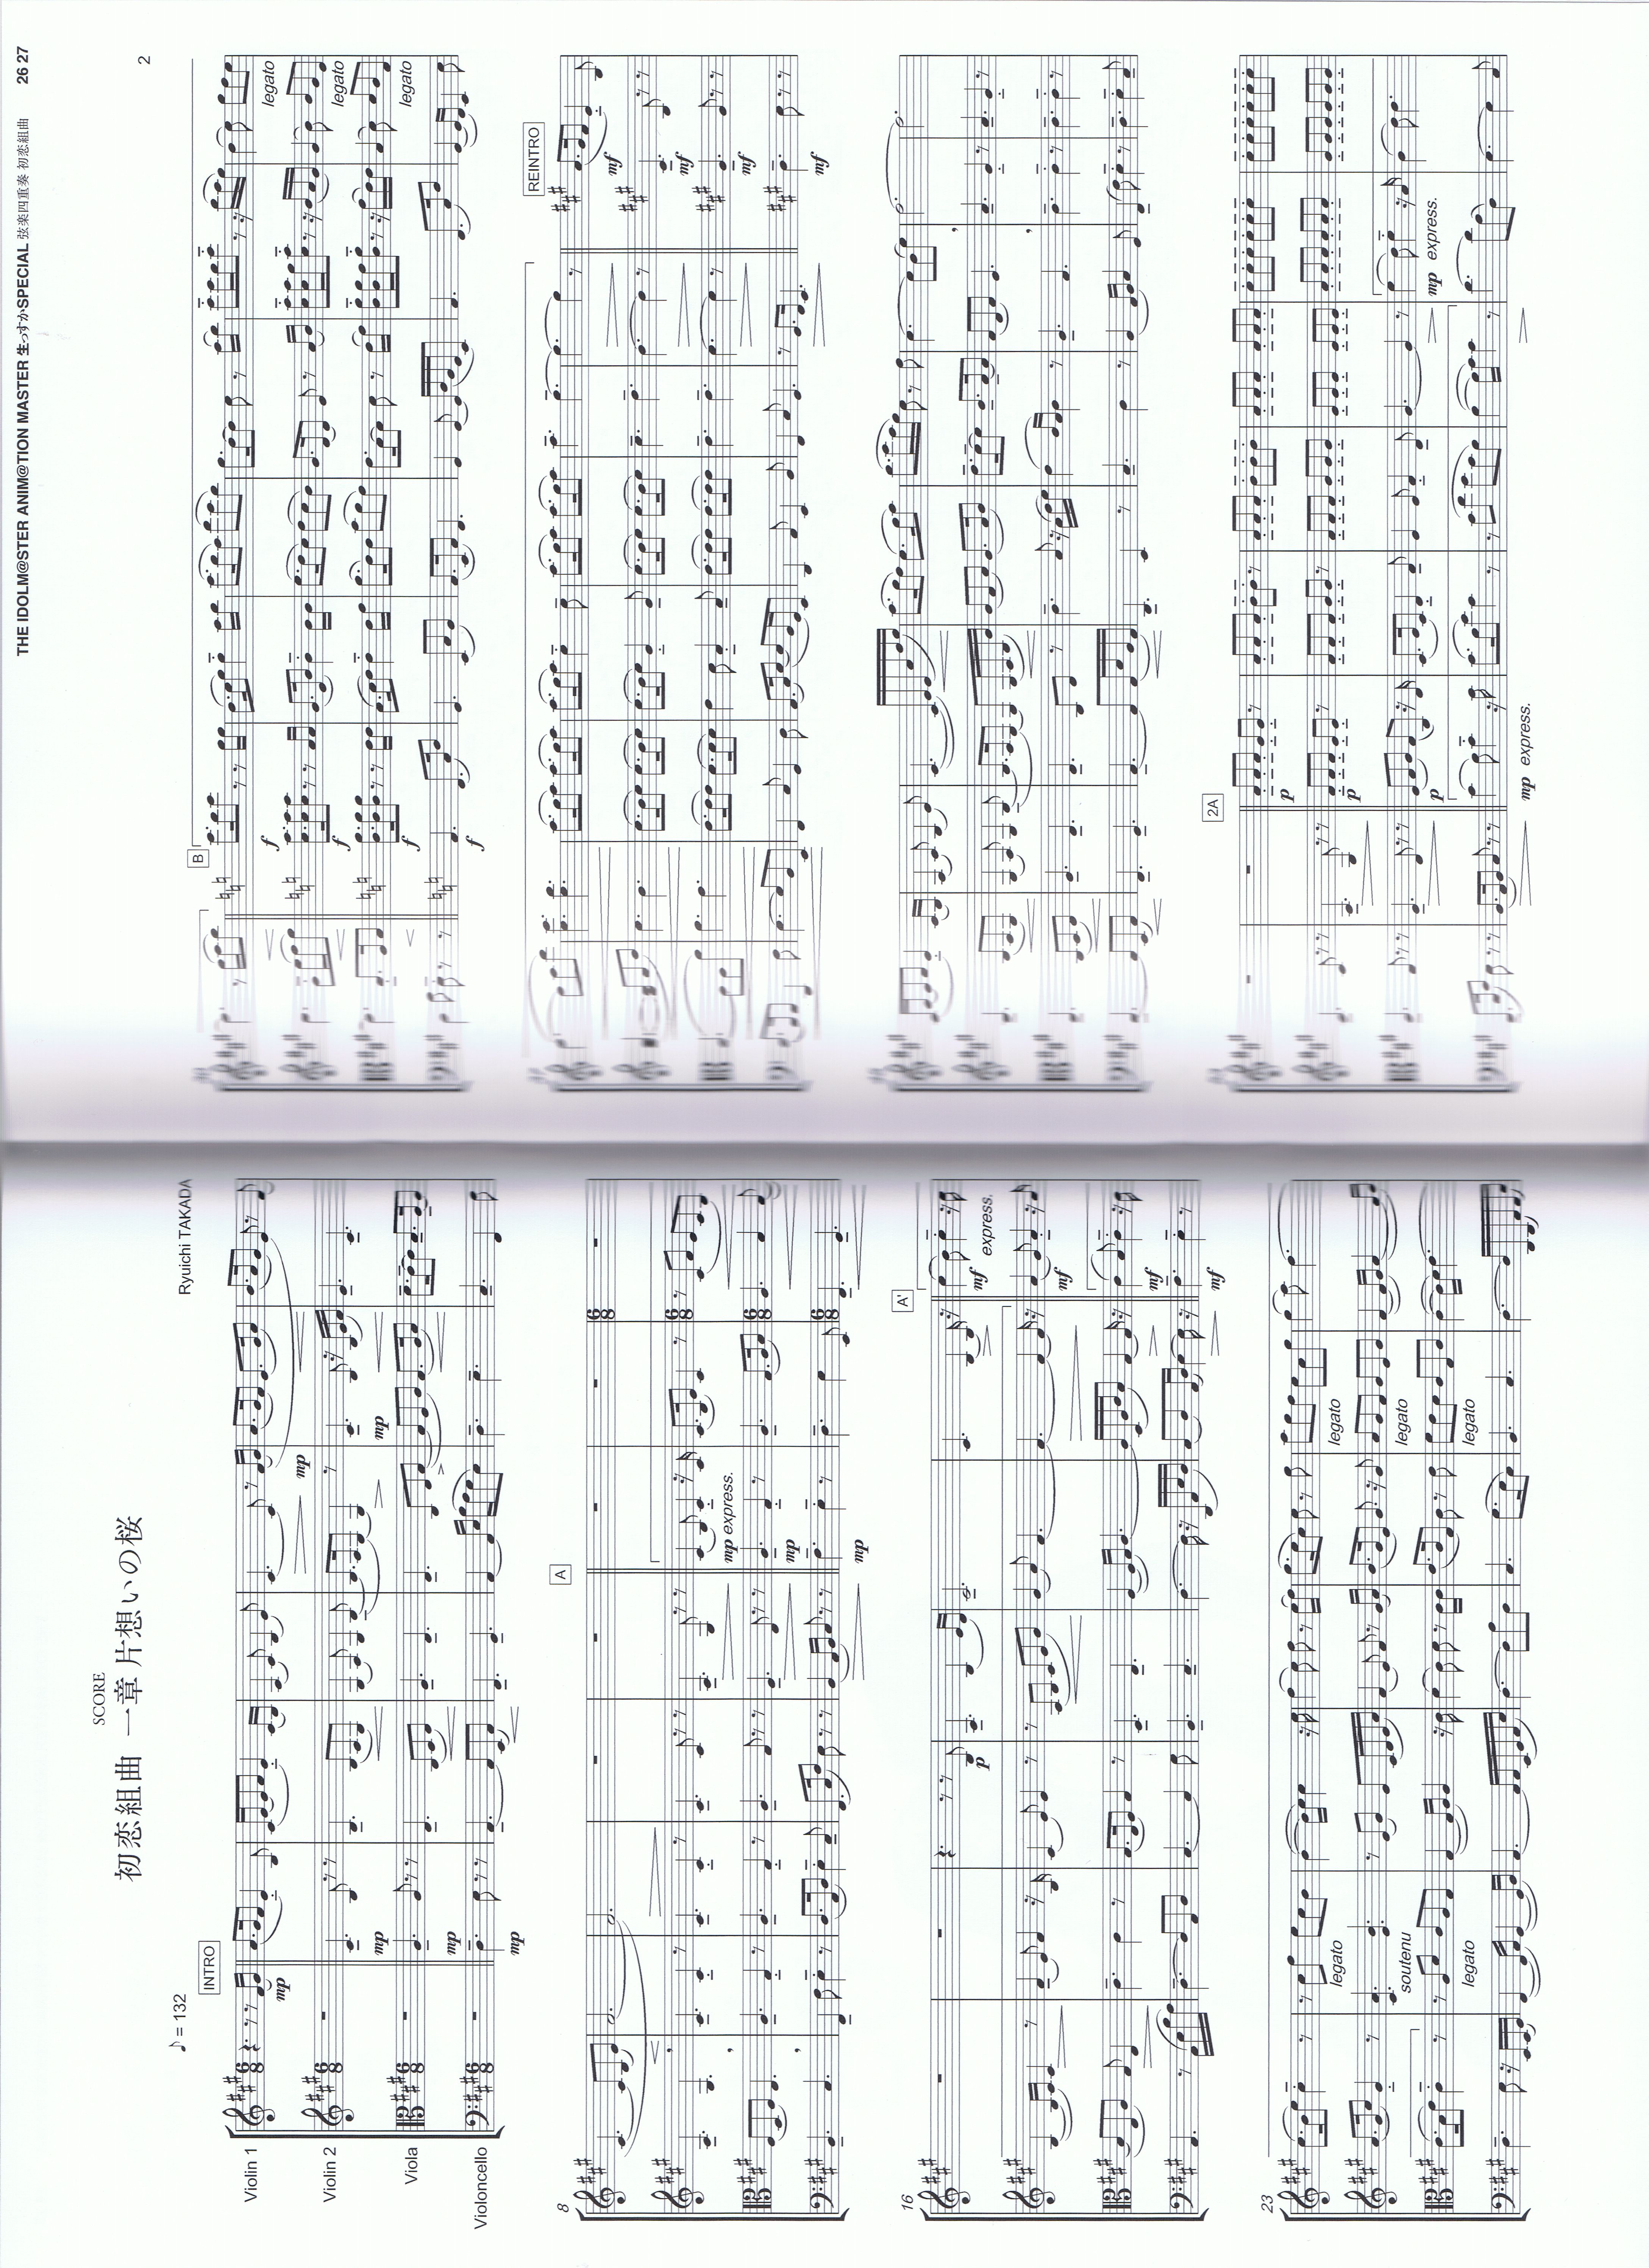 SCORE
初恋組曲 一章 片想いの桜
Ryuichi TAKADA
♪ = 132
INTRO
Violin 1
mp
mp
Violin 2
mp
mp
Viola
mp
Violoncello
mp
8
A
mp express.
mp
mp
16
A'
p
mf express.
mf
mf
mf
23
legato
legato
soutenu
legato
legato
legato
THE IDOLM@STER ANIM@TION MASTER 生っすかSPECIAL 弦楽四重奏 初恋組曲 26 27
2
B
f
legato
f
legato
f
legato
f
REINTRO
mf
mf
mf
mf
2A
p
p
p
mp express.
mp express.